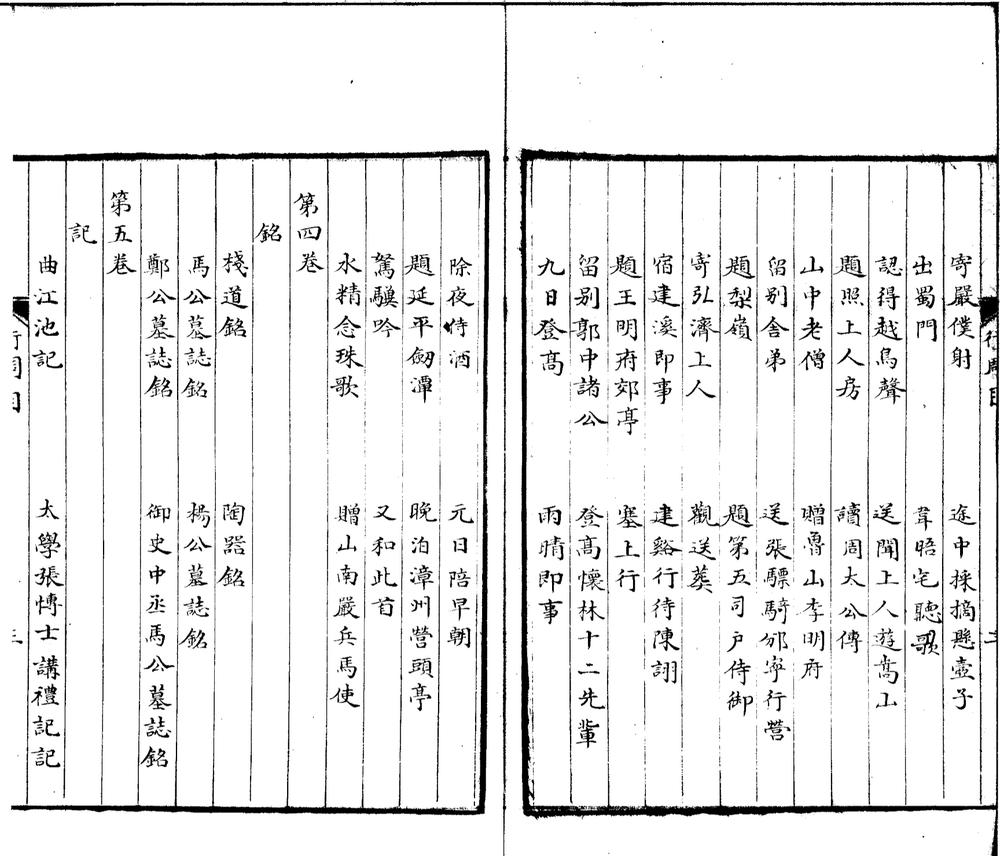 寄嚴僕射　途中採摘懸壺子
出蜀門　韋晤宅聽歌
認得越鳥聲　送聞上人遊嵩山
題照上人房　讀周太公傳
山中老僧　贈魯山李明府
留別舍弟　送張驃騎邠寧行營
題梨嶺　題第五司户侍御
寄弘濟上人　觀送葬
宿建溪即事　建谿行待陳詡
題王明府郊亭　塞上行
留別郭中諸公　登高懷林十二先輩
九日登高　雨晴即事
除夜侍酒　元日陪早朝
題延平劒潭　晚泊漳州營頭亭
駑驥吟　又和此首
水精念珠歌　贈山南嚴兵馬使
第四卷
銘
棧道銘　陶器銘
馬公墓誌銘　楊公墓誌銘
鄭公墓誌銘　御史中丞馬公墓誌銘
第五卷
記
曲江池記　太學張愽士講禮記記
行周目
三